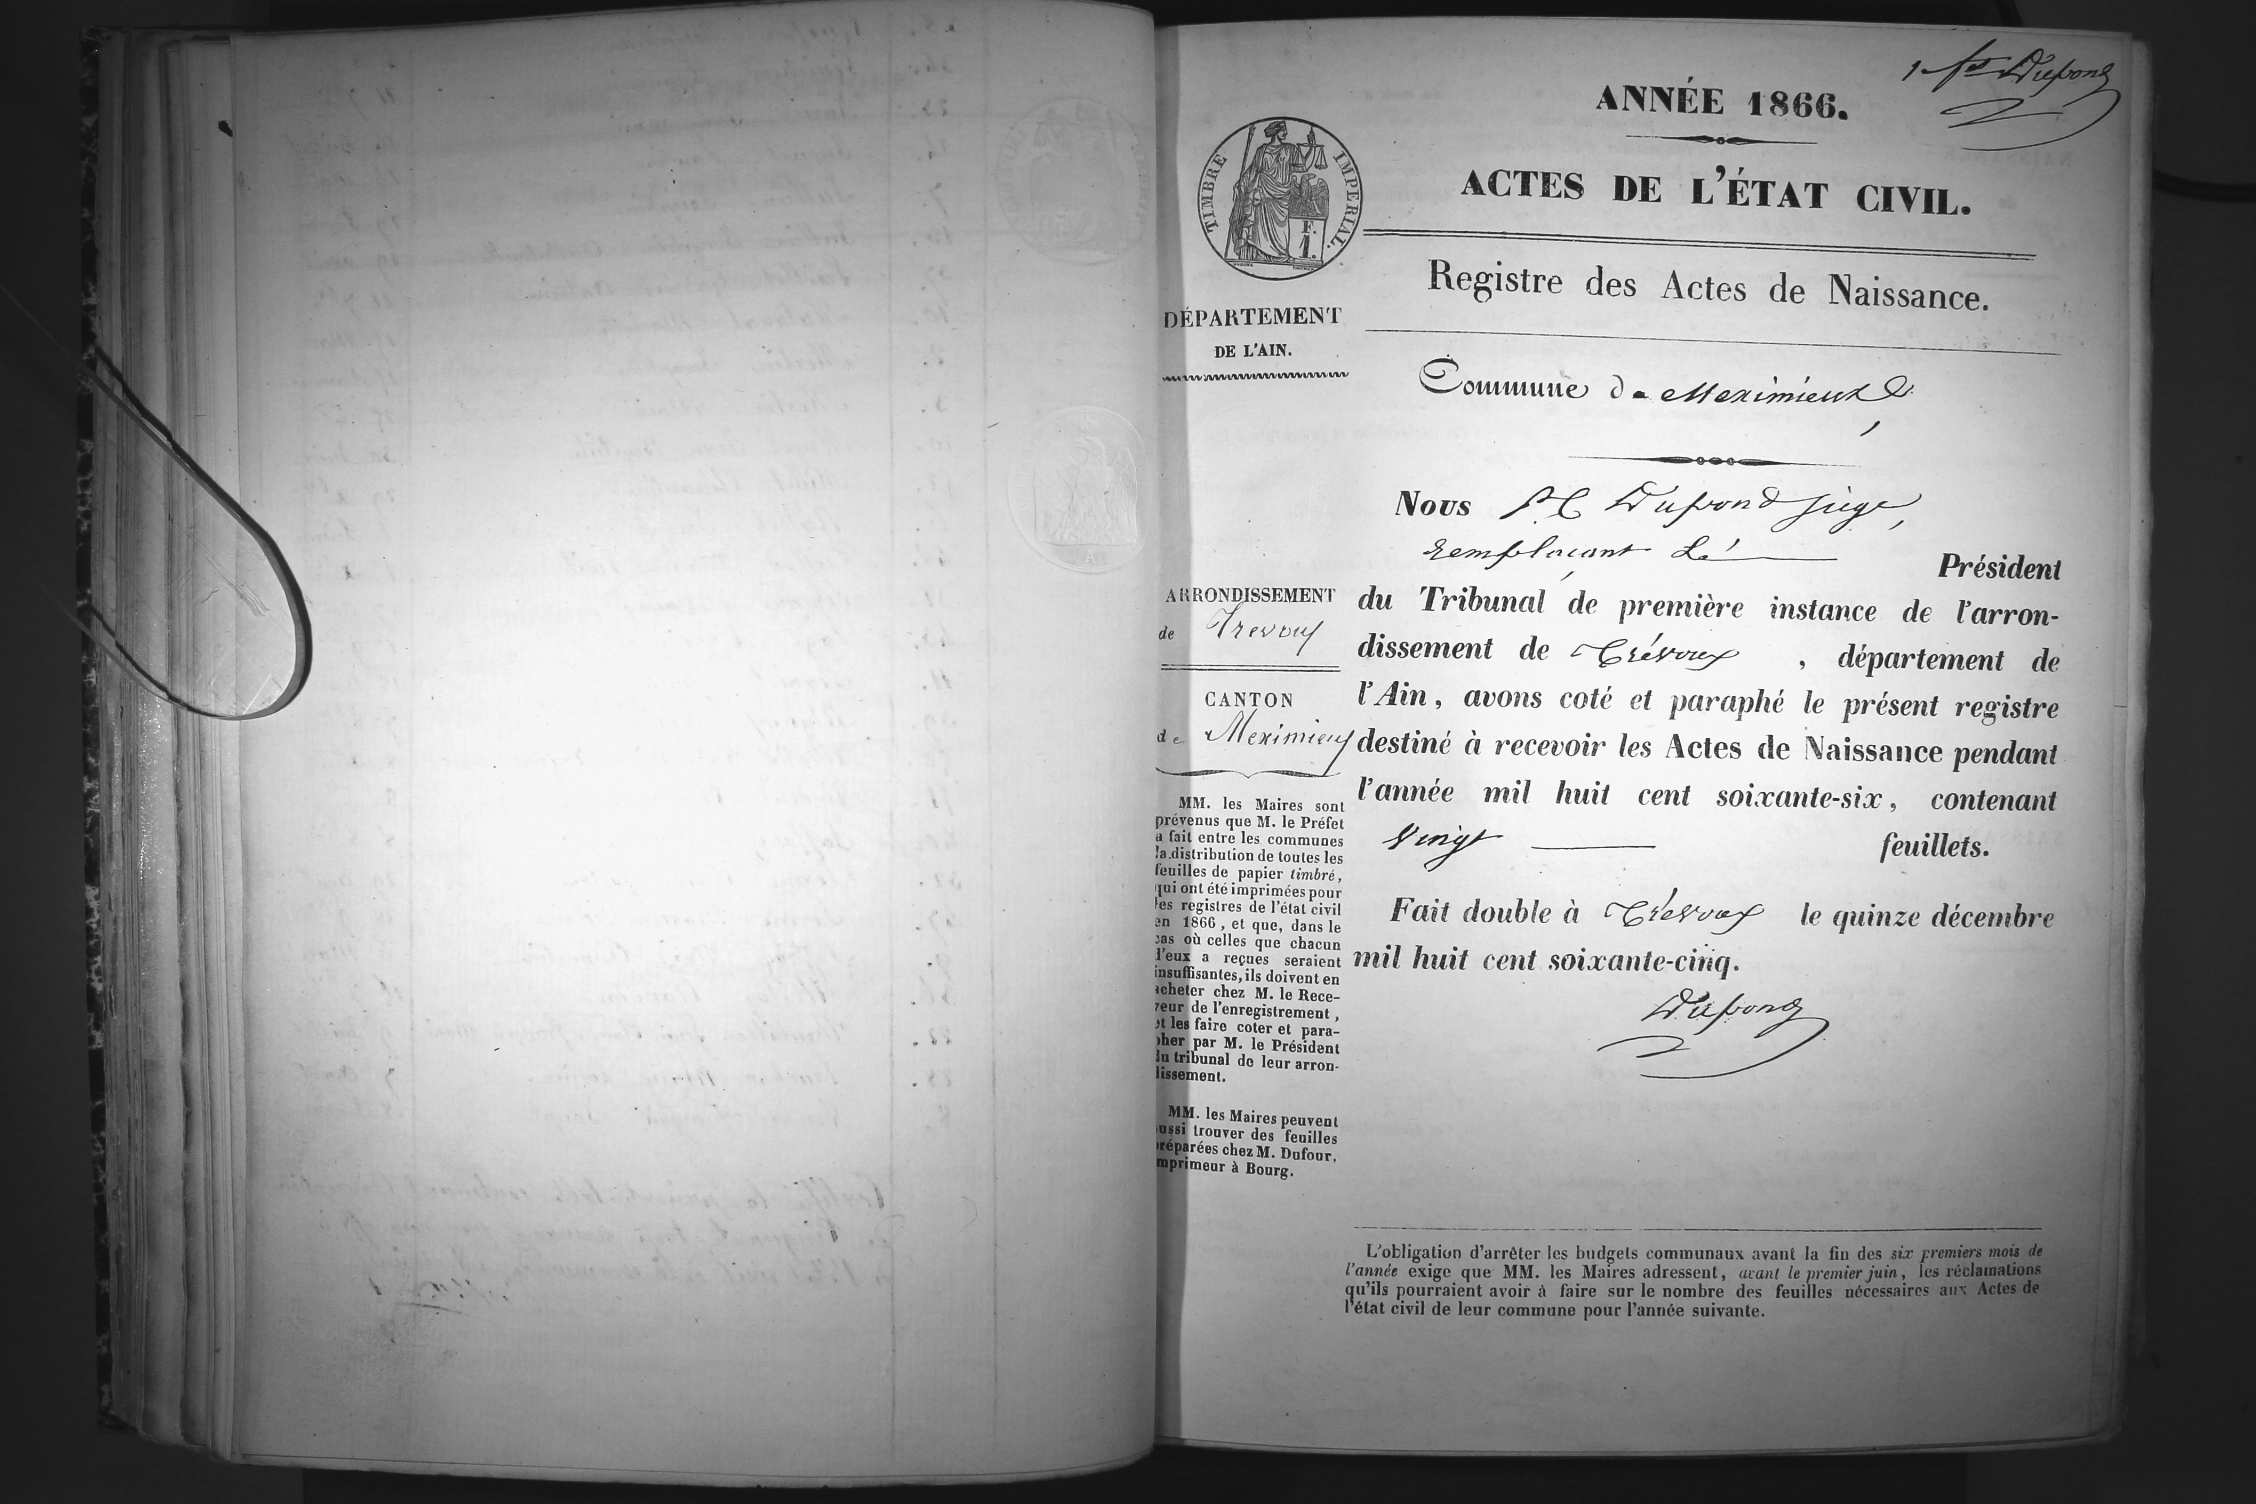 1er Dupond
ANNÉE 1866.
ACTES DE L'ÉTAT CIVIL.
TIMBRE IMPERIAL.
F.
1.
Registre des Actes de Naissance.
DÉPARTEMENT
DE L'AIN.
Commune de Meximieux
Nous Dupond juge,
remplaçant Le Président
du Tribunal de première instance de l'arron-
dissement de Trévoux, département de
l'Ain, avons coté et paraphé le présent registre
destiné à recevoir les Actes de Naissance pendant
l'année mil huit cent soixante-six, contenant
Vingt feuillets.
Fait double à Trévoux le quinze décembre
mil huit cent soixante-cinq.
Dupond
ARRONDISSEMENT
de Trevoux
CANTON
de Meximieux
MM. les Maires sont
prévenus que M. le Préfet
a fait entre les communes
la distribution de toutes les
feuilles de papier timbré,
qui ont été imprimées pour
les registres de l'état civil
en 1866, et que, dans le
cas où celles que chacun
d'eux a reçues seraient
insuffisantes, ils doivent en
acheter chez M. le Rece-
veur de l'enregistrement,
et les faire coter et para-
pher par M. le Président
du tribunal de leur arron-
dissement.
MM. les Maires peuvent
aussi trouver des feuilles
préparées chez M. Dufour,
imprimeur à Bourg.
L'obligation d'arrêter les budgets communaux avant la fin des six premiers mois de
l'année exige que MM. les Maires adressent, avant le premier juin, les réclamations
qu'ils pourraient avoir à faire sur le nombre des feuilles nécessaires aux Actes de
l'état civil de leur commune pour l'année suivante.